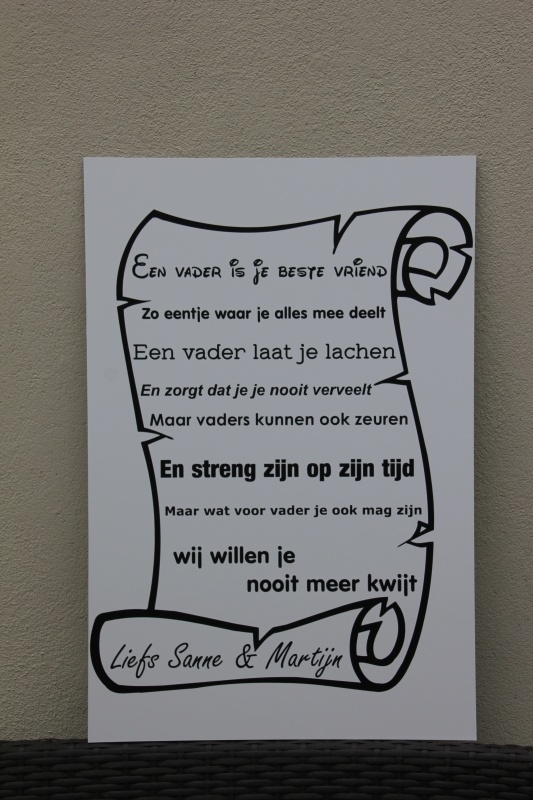 Een vader is je beste vriend
Zo eentje waar je alles mee deelt
Een vader laat je lachen
En zorgt dat je je nooit verveelt
Maar vaders kunnen ook zeuren
En streng zijn op zijn tijd
Maar wat voor vader je ook mag zijn
wij willen je
nooit meer kwijt
Liefs Sanne & Martijn